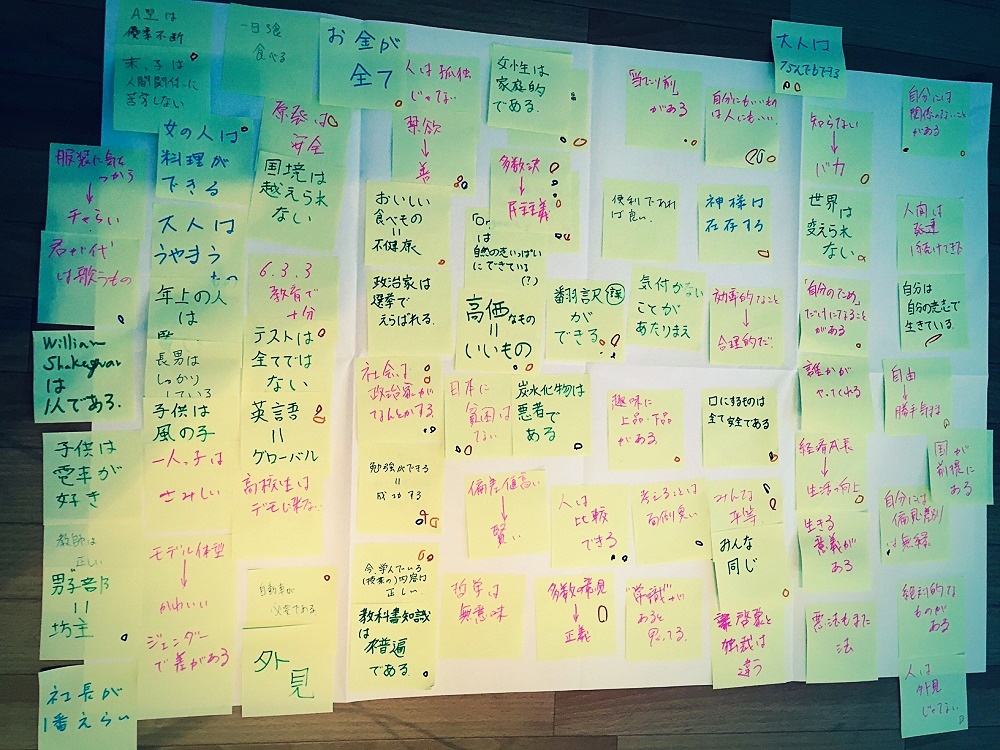 A型は
優柔不断
末っ子は
人間関係に
苦労しない
一日3食
食べる
お金が
全て
人は孤独
じゃない
禁欲
↓
善
女性は
家庭的
である.
「当たり前」
がある
自分にいいもの
は人にもいい.
大人は
知らない
↓
バカ
自分には
関係のないこと
がある
服装に気を
つかう
↓
チャらい
女の人は
料理が
できる
原発は
安全
国境は
越えられ
ない
おいしい
食べもの
=
不健康
多数決
↓
民主主義
は
自然の志いっぱい
にできている
(?)
便利であれ
ば良い.
神様は
存在する
世界は
変えられ
ない.
人間は
発達
し続けてきた
君が代
は歌うもの
大人は
うやまう
もの
6.3.3
教育で
十分
政治家は
選挙で
えらばれる.
高価なもの
=
いいもの
翻訳
ができる
気付かない
ことが
あたりまえ
効率的なこと
↓
合理的だ.
「自分のため」
だけになること
がある
自分は
自分の意志で
生きている.
年上の人
は
William
Shakespeare
は
1人である.
長男は
しっかり
している
テストは
全てでは
ない
社会は
政治家が
なんとかする
日本に
貧困は
ない
炭水化物は
悪者で
ある
趣味に
上品・下品
がある
口にするものは
全て安全である
誰かが
やってくれる
自由
↓
勝手気まま
子供は
風の子
英語
=
グローバル
子供は
電車が
好き
一人っ子は
さみしい
高校生は
デモに来ない
勉強ができる
=
成功する
偏差値高い
↓
賢い
人は
比較
できる
考えることは
面倒臭い
みんな
平等
経済成長
↓
生活の向上
自分には
偏見差別
は無縁
国が
前提に
ある
教師は
正しい
モデル体型
↓
かわいい
みんな
同じ
生きる
意義が
ある
男子部
=
坊主
ジェンダー
で差がある
自動車が
必要である
今、学んでいる
(授業の)内容は
正しい.
教科書知識
は
普遍
である.
哲学は
無意味
多数の意見
↓
正義
"常識"が
あると
思ってる.
啓蒙と
独裁は
違う
悪法もまた
法
絶対的な
ものが
ある
社長が
1番えらい
外見
人は
外見
じゃない